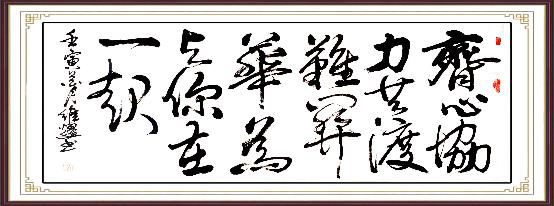 齊心協
力共渡
難關
華為
与你在
一起
壬寅 月維 书